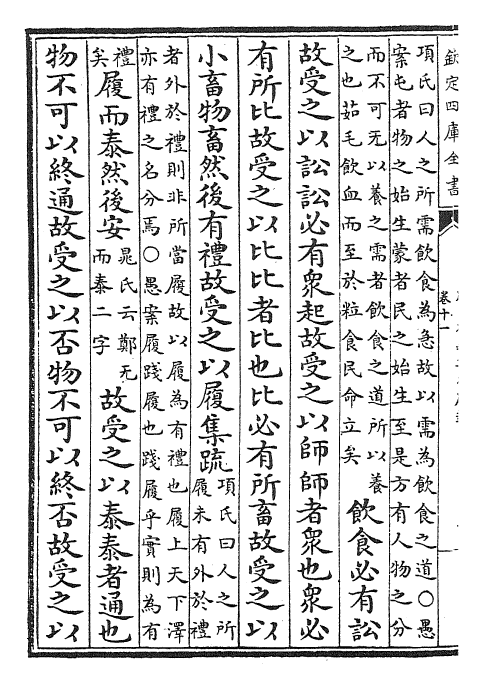 欽定四庫全書
卷十一
項氏曰人之所需飲食為急故以需為飲食之道〇愚
案屯者物之始生蒙者民之始生至是方有人物之分
而不可无以養之需者飲食之道所以養
之也茹毛飲血而至於粒食民命立矣
飲食必有訟
故受之以訟訟必有衆起故受之以師師者衆也衆必
有所比故受之以比比者比也比必有所畜故受之以
小畜物畜然後有禮故受之以履集疏
項氏曰人之所
履未有外於禮
者外於禮則非所當履故以履為有禮也履上天下澤
亦有禮之名分焉〇愚案履踐履也踐履乎實則為有
禮
矣
履而泰然後安
晁氏云鄭无
而泰二字
故受之以泰泰者通也
物不可以終通故受之以否物不可以終否故受之以